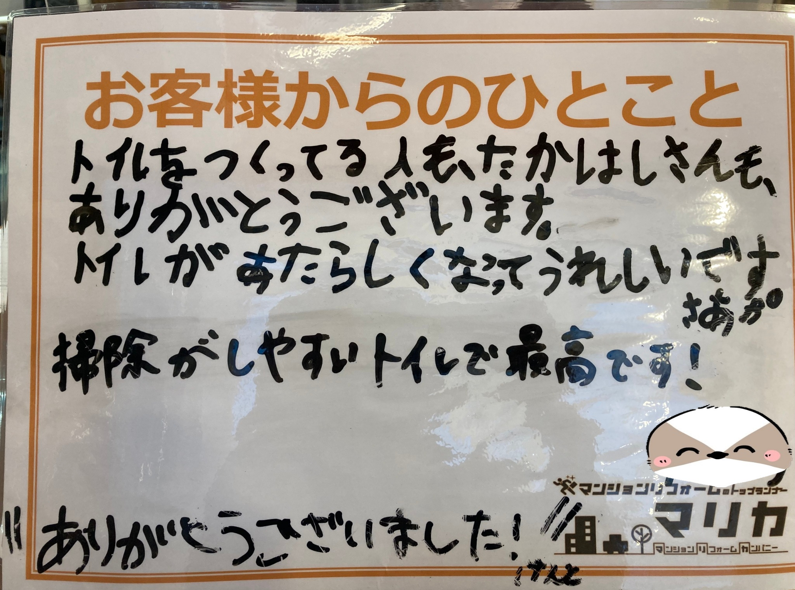 お客様からのひとこと
トイレをつくってる人も、たかはしさんも、
ありがとうございます。
トイレがあたらしくなってうれしいです
さあが
掃除がしやすいトイレで最高です!
ありがとうございました!
けんと
マンションリフォームのトップランナー
マリカ
マンションリフォームカンパニー